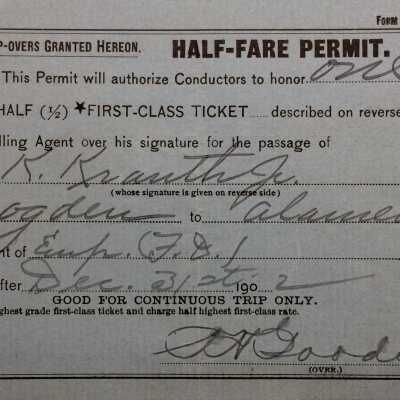 FORM
P-OVERS GRANTED HEREON. HALF-FARE PERMIT.
This Permit will authorize Conductors to honor one
HALF (½) ★FIRST-CLASS TICKET ..... described on reverse
lling Agent over his signature for the passage of
K. Krauth Jr.
(whose signature is given on reverse side)
Ogden to Alame
nt of Emp. (F.D.)
fter Dec. 31st 1902
GOOD FOR CONTINUOUS TRIP ONLY.
ghest grade first-class ticket and charge half highest first-class rate.
Goode
(OVER.)